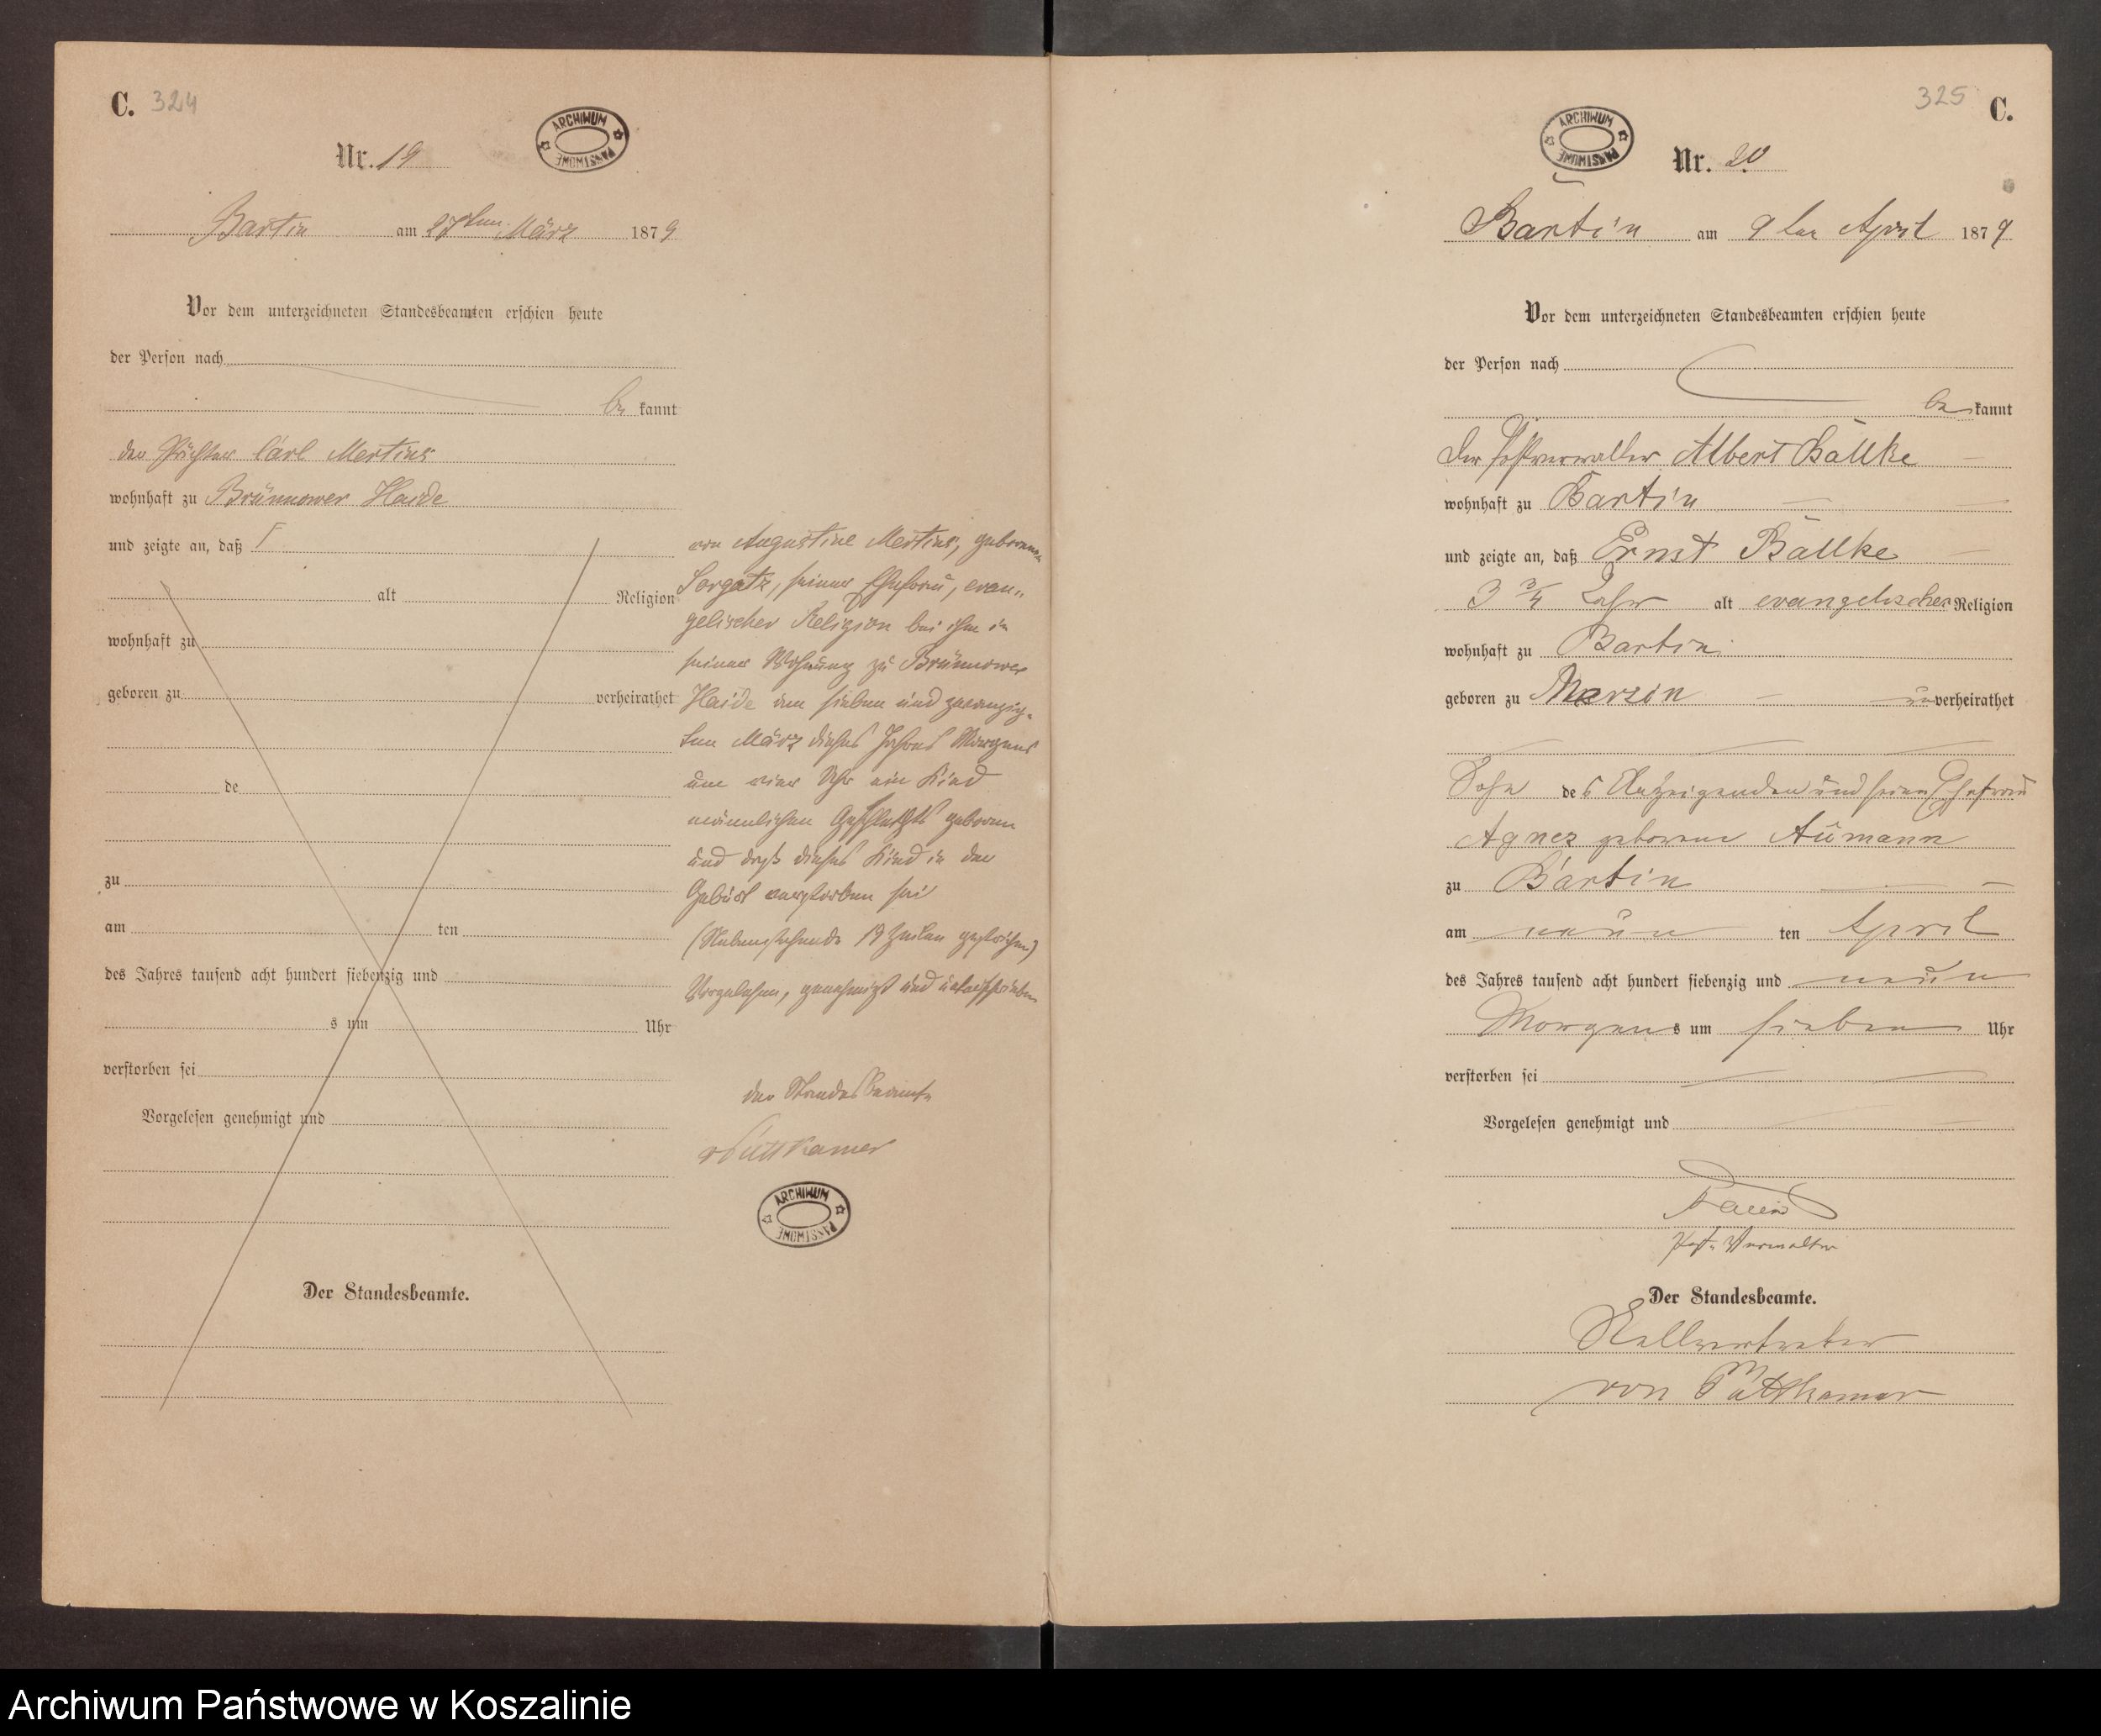 C. 324
Nr. 19
ARCHIWUM PAŃSTWOWE
Bartin am 27ten März 1879
Vor dem unterzeichneten Standesbeamten erschien heute
der Person nach
be kannt
der Pächter Carl Mertins
wohnhaft zu Brünnower Haide
und zeigte an, daß
alt Religion
wohnhaft zu
geboren zu verheirathet
de
zu
am ten
des Jahres tausend acht hundert siebenzig und
s um Uhr
verstorben sei
Vorgelesen genehmigt und
Der Standesbeamte.
von Augustine Mertins, geborenen
Sorgatz, seiner Ehefrau, evan-
gelischer Religion bei ihm in
seiner Wohnung zu Brünnower
Haide am sieben und zwanzig-
ten März dieses Jahres Morgens
um einer Uhr ein Kind
männlichen Geschlechts geboren
und daß dieses Kind in der
Geburt verstorben sei
(Nebenstehende 19 Zeilen gestrichen)
Vorgelesen, genehmigt und unterschrieben
der Standesbeamte
v Puttkamer
ARCHIWUM PAŃSTWOWE
325 C.
ARCHIWUM PAŃSTWOWE
Nr. 20.
Bartin am 9ten April 1879
Vor dem unterzeichneten Standesbeamten erschien heute
der Person nach
be kannt
der Postverwalter Albert Bällke
wohnhaft zu Bartin
und zeigte an, daß Ernst Bällke
3 3/4 Jahr alt evangelischer Religion
wohnhaft zu Bartin
geboren zu Marzin unverheirathet
Sohn des Anzeigenden und seiner Ehefrau
Agnes geborene Aumann
zu Bartin
am neun ten April
des Jahres tausend acht hundert siebenzig und neun
Morgens um sieben Uhr
verstorben sei
Vorgelesen genehmigt und
Post-Verwalter
Der Standesbeamte.
Stellvertreter
von Puttkamer
Archiwum Państwowe w Koszalinie